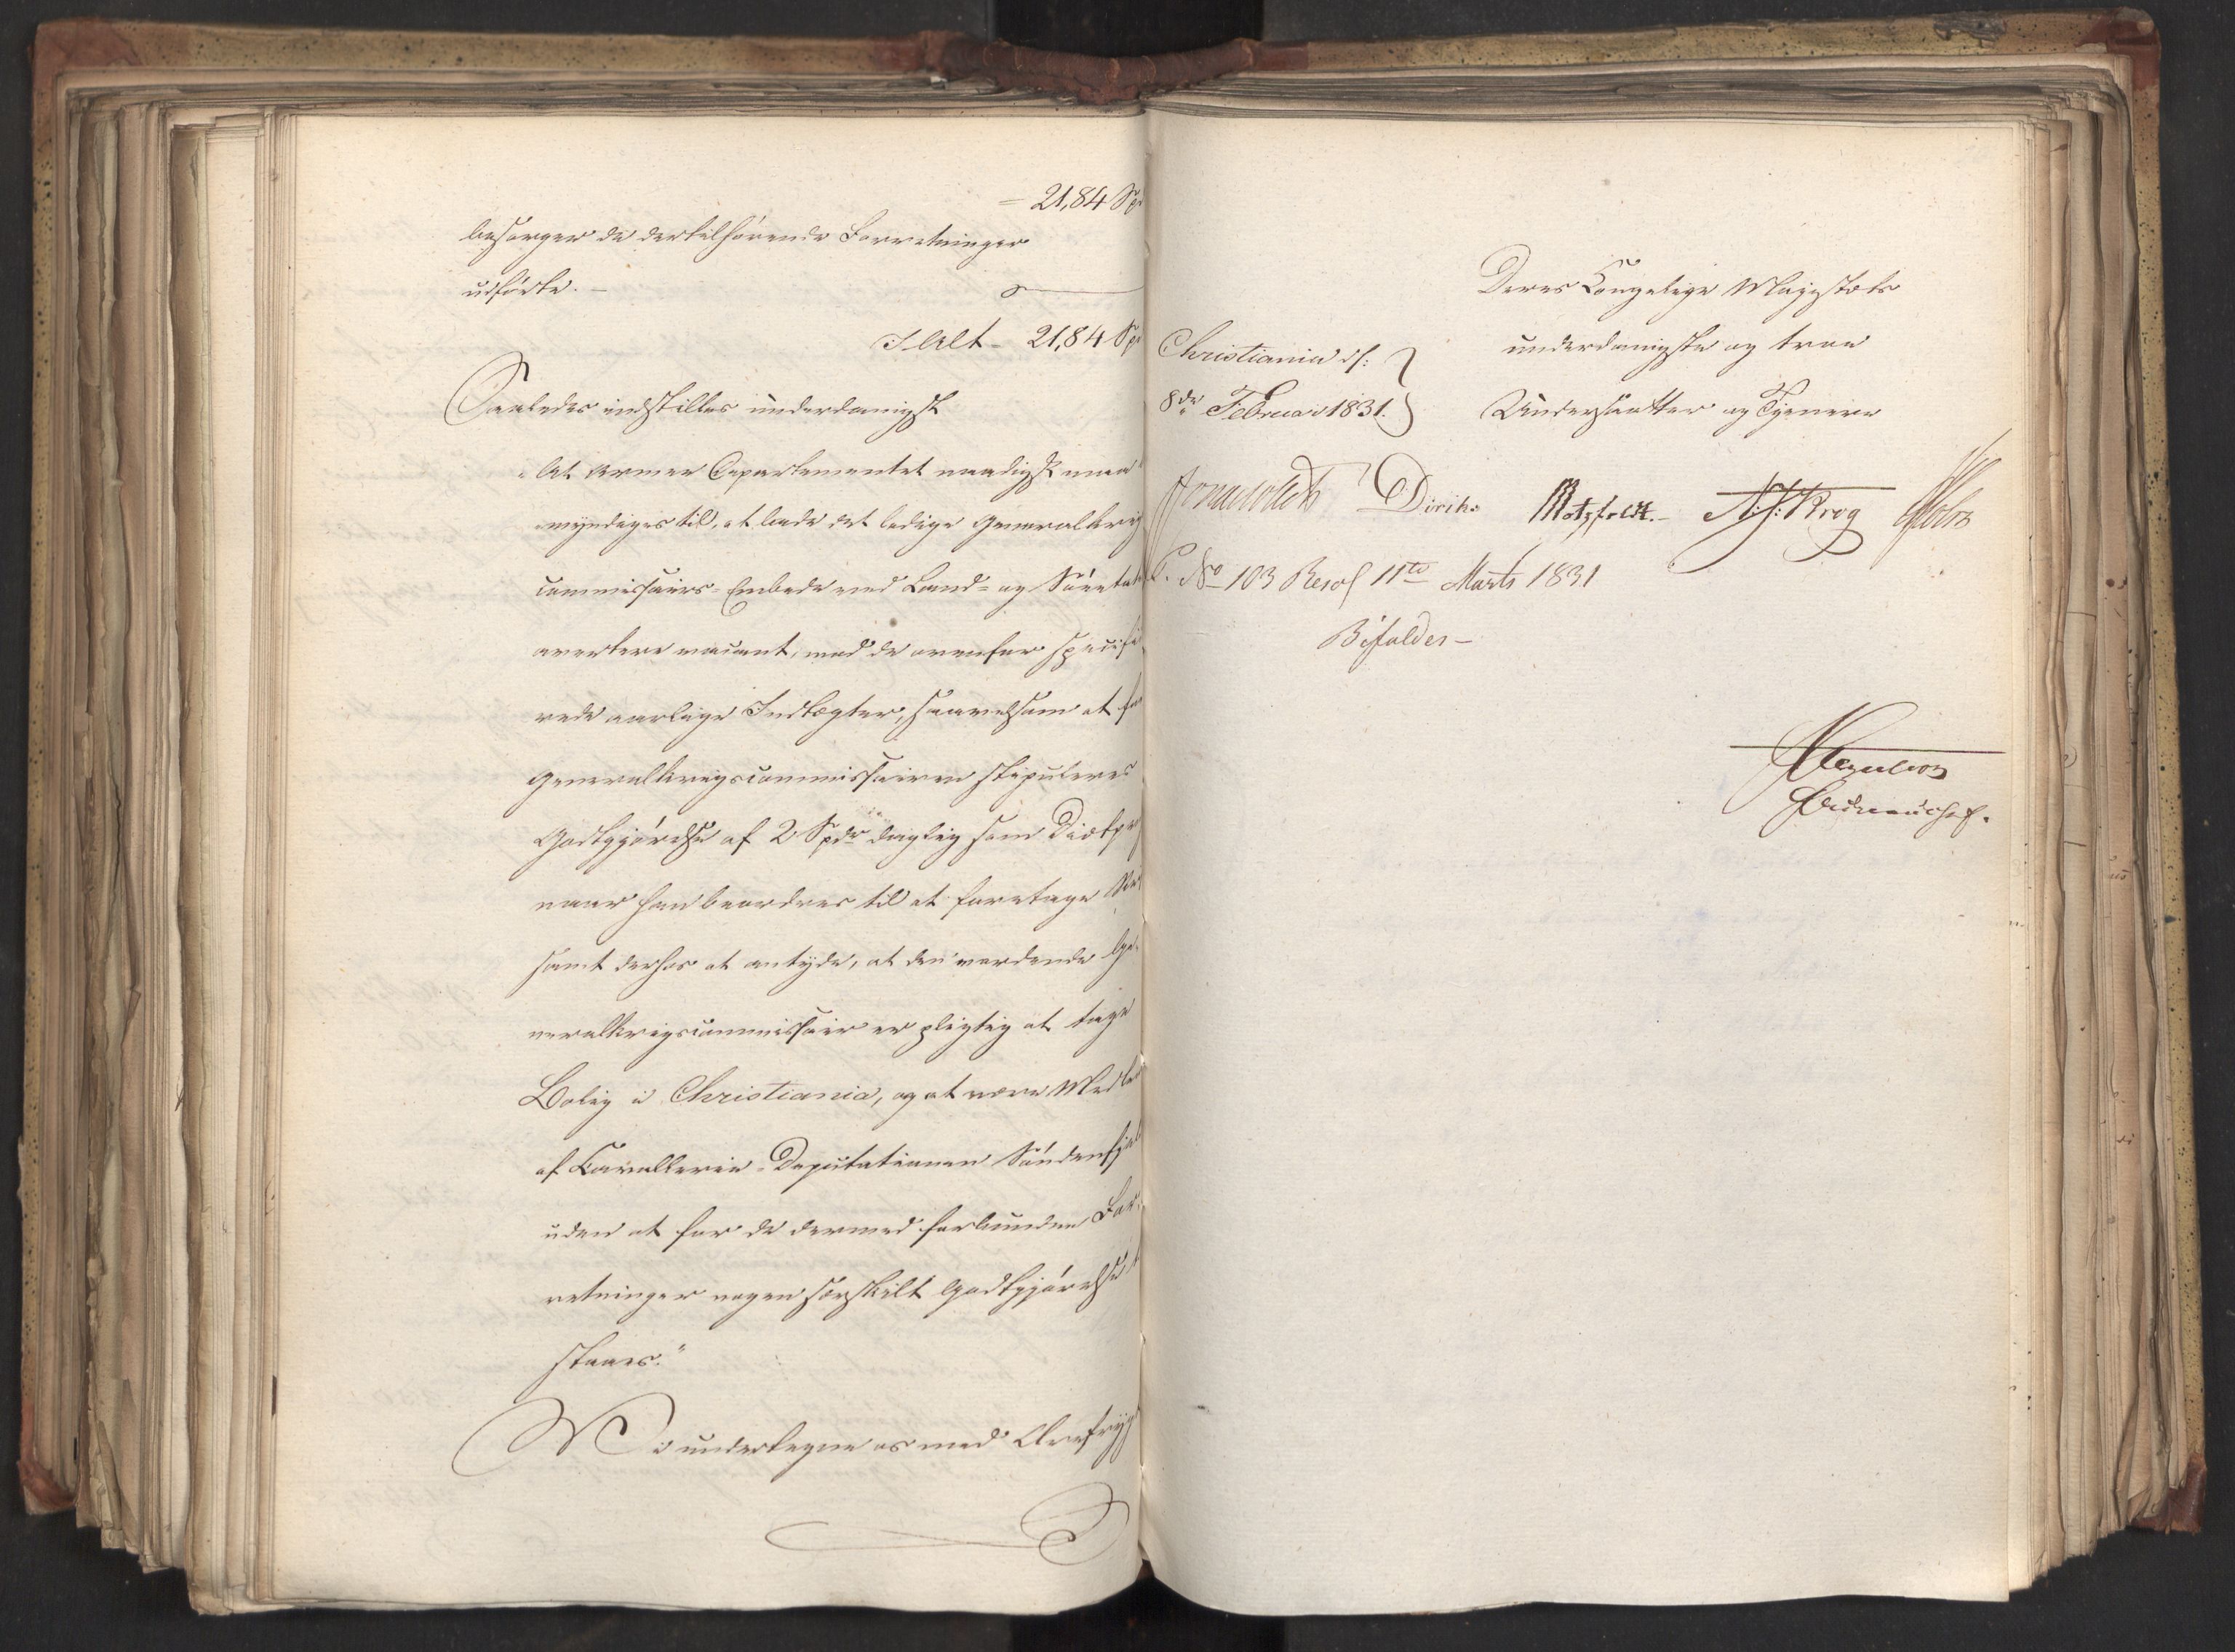 = 21,84 Sp
besørger de dertilhørende Forretninger
udførte. –
I Alt – 21,84 Sp
Saaledes indstilles underdanigst
"At Armee Departementet naadigst maa be-
myndiges til, at lade det ledige Generalkrigs
commissairs-Embede ved Land- og Søeetaten
avertere vacant, med de ovenfor specifice
rede aarlige Indtægter, saavelsom at for
Generalkrigscommissairen stipuleres
Godtgjørelse af 2 Spdr daglig som Diætpenge
naar han beordres til at foretage Rei
samt derhos at antyde, at den vordende Ge-
neralkrigscommissair er pligtig at tage
Bolig i Christiania, og at være Medlem
af Cavallerie-Deputationen Søndenfjelds
uden at for de dermed forbundne For-
retninger nogen særskilt Godtgjørelse
staaes."
Vi undertegne os med Ærefrygt
Deres Kongelige Majestæts
underdanigste og troe
Undersaatter og Tjenere
Christiania d:
8de Februar 1831.
Diriks Motzfeldt. – A. J: Krog Holst
C. No 103 Resol 11te Marts 1831
Bifaldes –
Bureauchef.